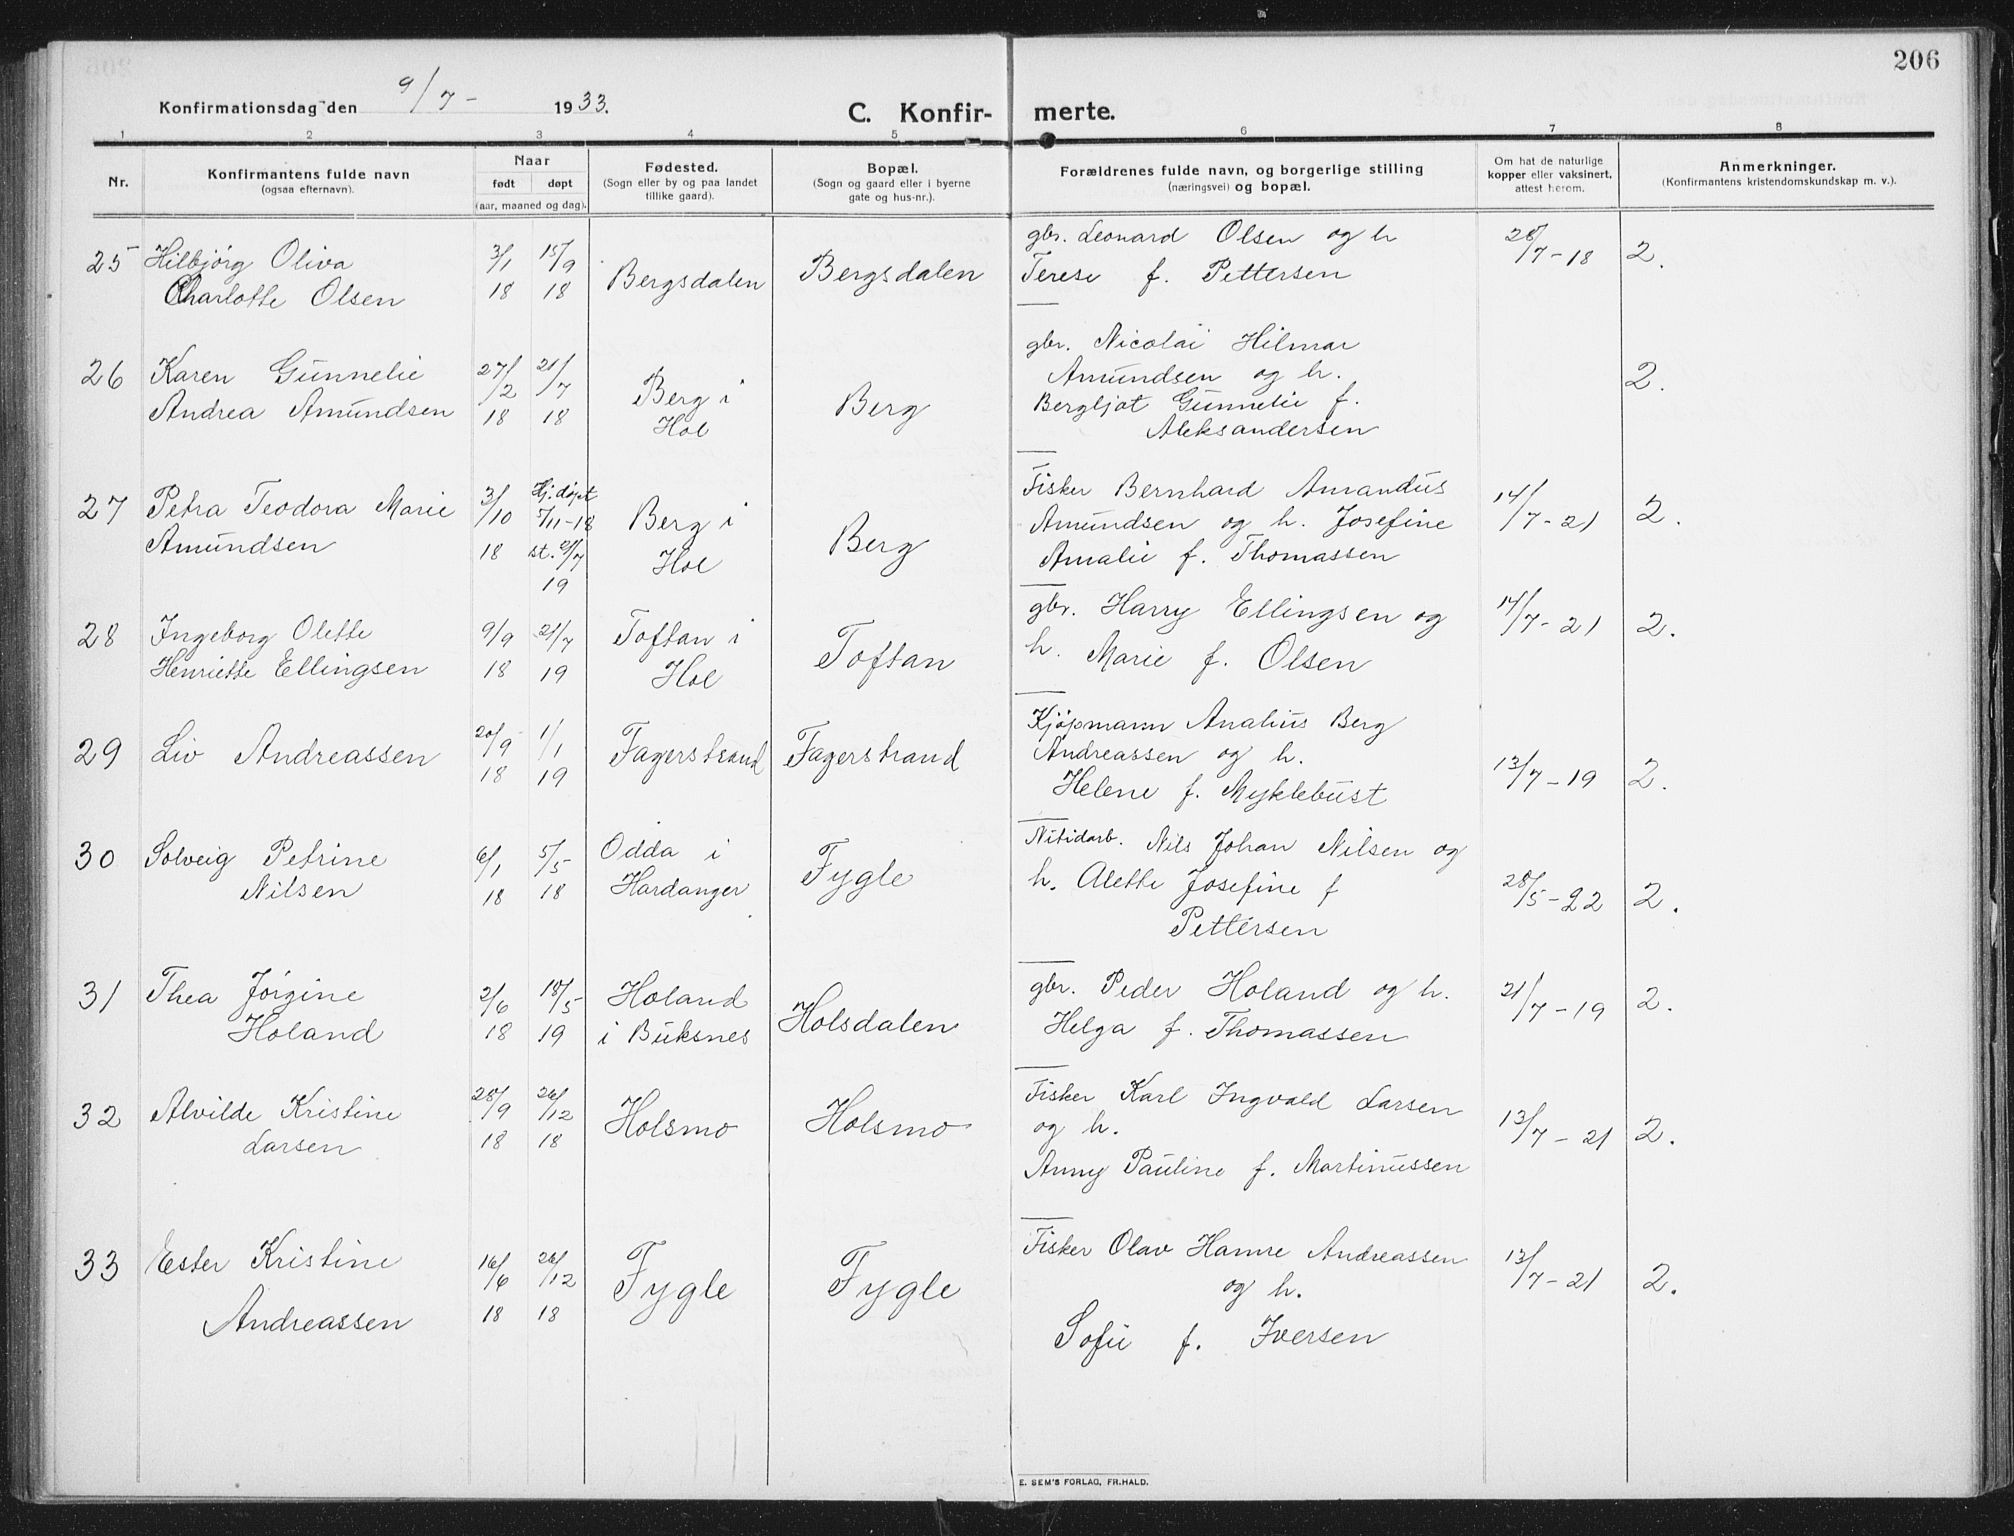 206
Konfirmationsdag den 9/7 - 1933.
C. Konfir- merte.
1 2 3 4 5 6 7 8
Nr.
Konfirmantens fulde navn
(ogsaa efternavn).
Naar
født døpt
(aar, maaned og dag).
Fødested.
(Sogn eller by og paa landet
tillike gaard).
Bopæl.
(Sogn og gaard eller i byerne
gate og hus-nr.).
Forældrenes fulde navn, og borgerlige stilling
(næringsvei) og bopæl.
Om hat de naturlige
kopper eller vaksinert,
attest herom.
Anmerkninger.
(Konfirmantens kristendomskundskap m. v.).
25 Hilbjørg Oliva
Charlotte Olsen
3/1 18
15/9 18
Bergsdalen
Bergsdalen
gbr. Leonard Olsen og h
Terese f. Pettersen
28/7-18
2.
26 Karen Gunnelie
Andrea Amundsen
27/2 18
21/7 18
Berg i
Hol
Berg
gbr. Nicolai Hilmar
Amundsen og h.
Bergljot Gunnelie f.
Aleksandersen
2.
27 Petra Teodora Marie
Amundsen
3/10
18
Hj. døpt
7/11-18
st. 21/7
19
Berg i
Hol
Berg
Fisker Bernhard Amandus
Amundsen og h. Josefine
Amalie f. Thomassen
14/7-21
2.
28 Ingeborg Olette
Henriette Ellingsen
9/9 18
21/7 19
Toftan i
Hol
Toftan
gbr. Harry Ellingsen og
h. Marie f. Olsen
14/7-21
2.
29 Liv Andreassen
20/9 18
1/1 19
Fagerstrand
Fagerstrand
Kjøpmann Analius Berg
Andreassen og h.
Helene f. Myklebust
13/7-19
2.
30 Solveig Petrine
Nilsen
6/1 18
5/5 18
Odda i
Hardanger
Fygle
Nitidarb. Nils Johan Nilsen og
h. Alette Josefine f
Pettersen
28/5-22
2.
31 Thea Jørgine
Holand
2/6 18
18/5 19
Holand
i Buksnes
Holsdalen
gbr. Peder Holand og h.
Helga f. Thomassen
21/7-19
2.
32 Alvilde Kristine
Larsen
28/9 18
26/12 18
Holsmo
Holsmo
Fisker Karl Ingvald Larsen
og h.
Anny Pauline f. Martinussen
13/7-21
2.
33 Ester Kristine
Andreassen
16/6 18
26/12 18
Fygle
Fygle
Fisker Olav Hamre Andreassen
og h.
Sofie f. Iversen
13/7-21
2.
E. SEM'S FORLAG, FR.HALD.